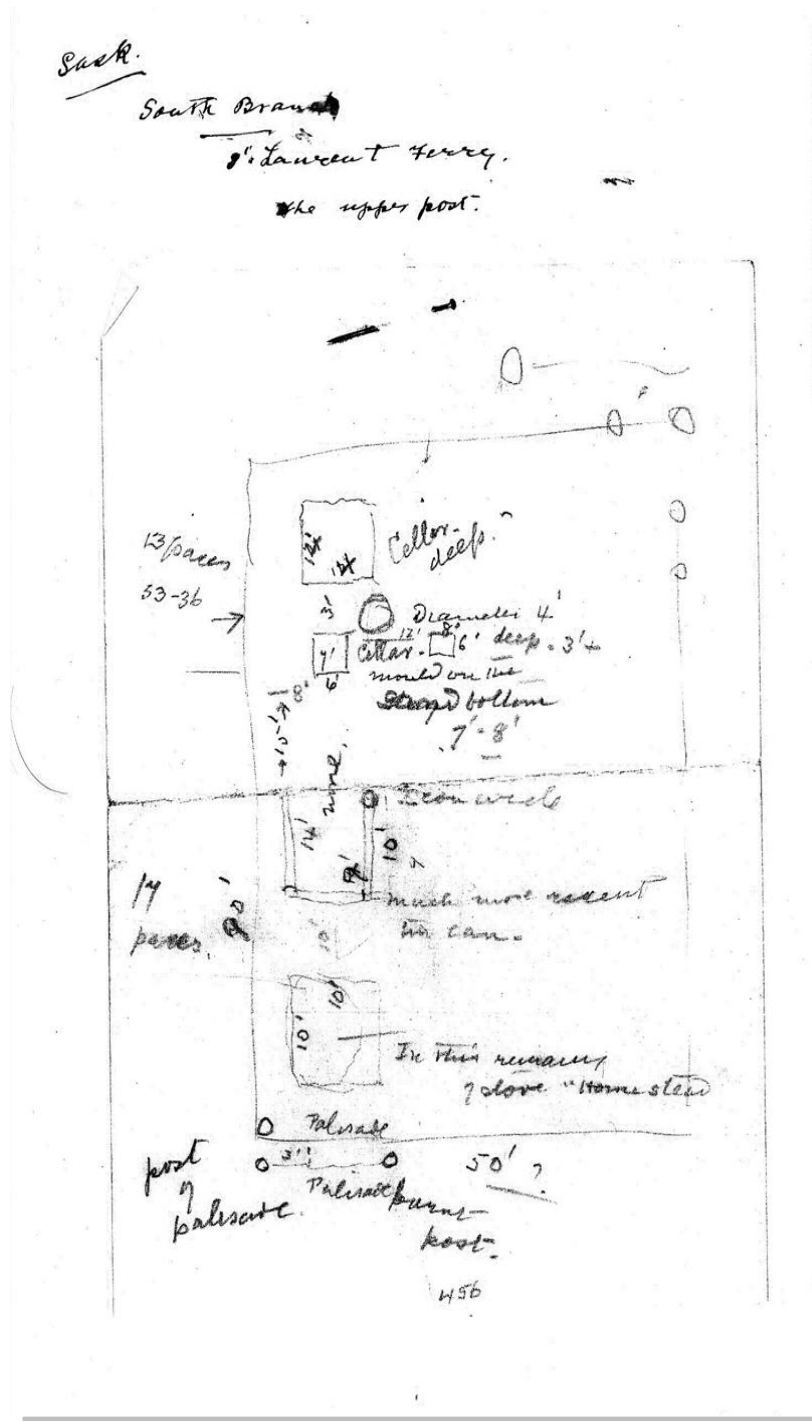 Sask.
South Branch
St. Laurent Ferry.
the upper post.
13 paces
53-36
12'
12'
Cellar-
deep.
3'
Diameter 4'
7'
6'
Cellar - 12' 8' 6' deep = 3' +
mould on the
bottom
7'-8'
8'
15'
none.
Iron circle
14'
9'
10'
?
much more recent
tin can.
17
paces.
90'
10'
10'
10'
In this remains
of stove "Homestead
Palisade
post
of
palisade.
3'
Palisade
burnt
post.
50' ?
456